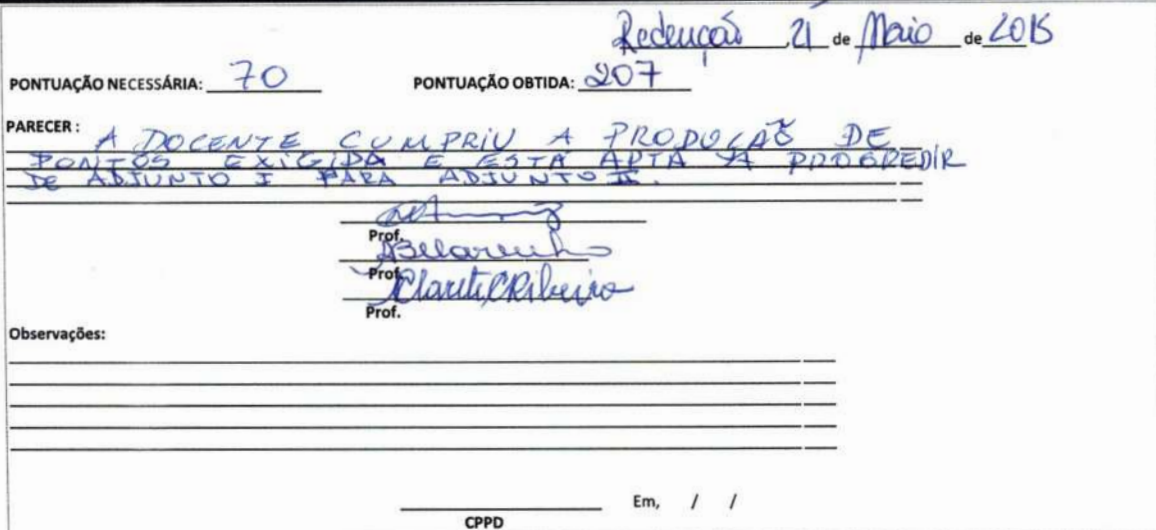 Redenção 21 de Maio de 2015
PONTUAÇÃO NECESSÁRIA: 70 PONTUAÇÃO OBTIDA: 207
PARECER : A DOCENTE CUMPRIU A PRODUÇÃO DE
PONTOS EXIGIDA E ESTÁ APTA A PROGREDIR
DE ADJUNTO I PARA ADJUNTO II.
Prof.
Prof.
Prof.
Observações:
Em, / /
CPPD